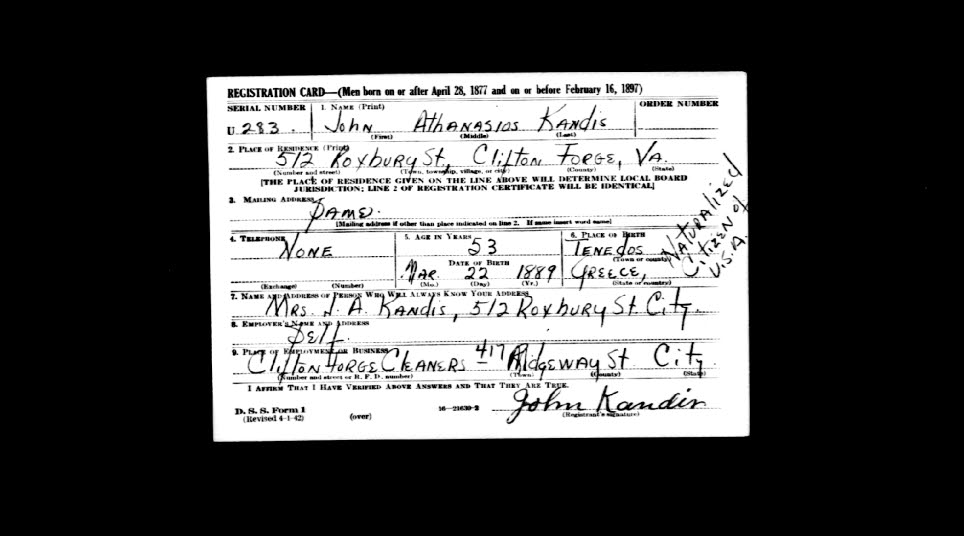 REGISTRATION CARD—(Men born on or after April 28, 1877 and on or before February 16, 1897)
SERIAL NUMBER 1. NAME (Print) ORDER NUMBER
U 283. John Athanasios Kandis
(First) (Middle) (Last)
2. PLACE OF RESIDENCE (Print)
512 Roxbury St, Clifton Forge, Va.
(Number and street) (Town, township, village, or city) (County) (State)
[THE PLACE OF RESIDENCE GIVEN ON THE LINE ABOVE WILL DETERMINE LOCAL BOARD
JURISDICTION; LINE 2 OF REGISTRATION CERTIFICATE WILL BE IDENTICAL]
3. MAILING ADDRESS
Same.
[Mailing address if other than place indicated on line 2. If same insert word same]
4. TELEPHONE 5. AGE IN YEARS 6. PLACE OF BIRTH
None 53 Tenedos
(Town or county)
DATE OF BIRTH
Mar. 22 1889 Greece,
(Exchange) (Number) (Mo.) (Day) (Yr.) (State or country)
Naturalized
Citizen of
U.S.A.
7. NAME AND ADDRESS OF PERSON WHO WILL ALWAYS KNOW YOUR ADDRESS
Mrs. J. A. Kandis, 512 Roxbury St. City.
8. EMPLOYER'S NAME AND ADDRESS
Self.
9. PLACE OF EMPLOYMENT OR BUSINESS
Clifton Forge Cleaners 417 Ridgeway St City.
(Number and street or R. F. D. number) (Town) (County) (State)
I AFFIRM THAT I HAVE VERIFIED ABOVE ANSWERS AND THAT THEY ARE TRUE.
John Kandis
D. S. S. Form 1 16—21630-2 (Registrant's signature)
(Revised 4-1-42) (over)